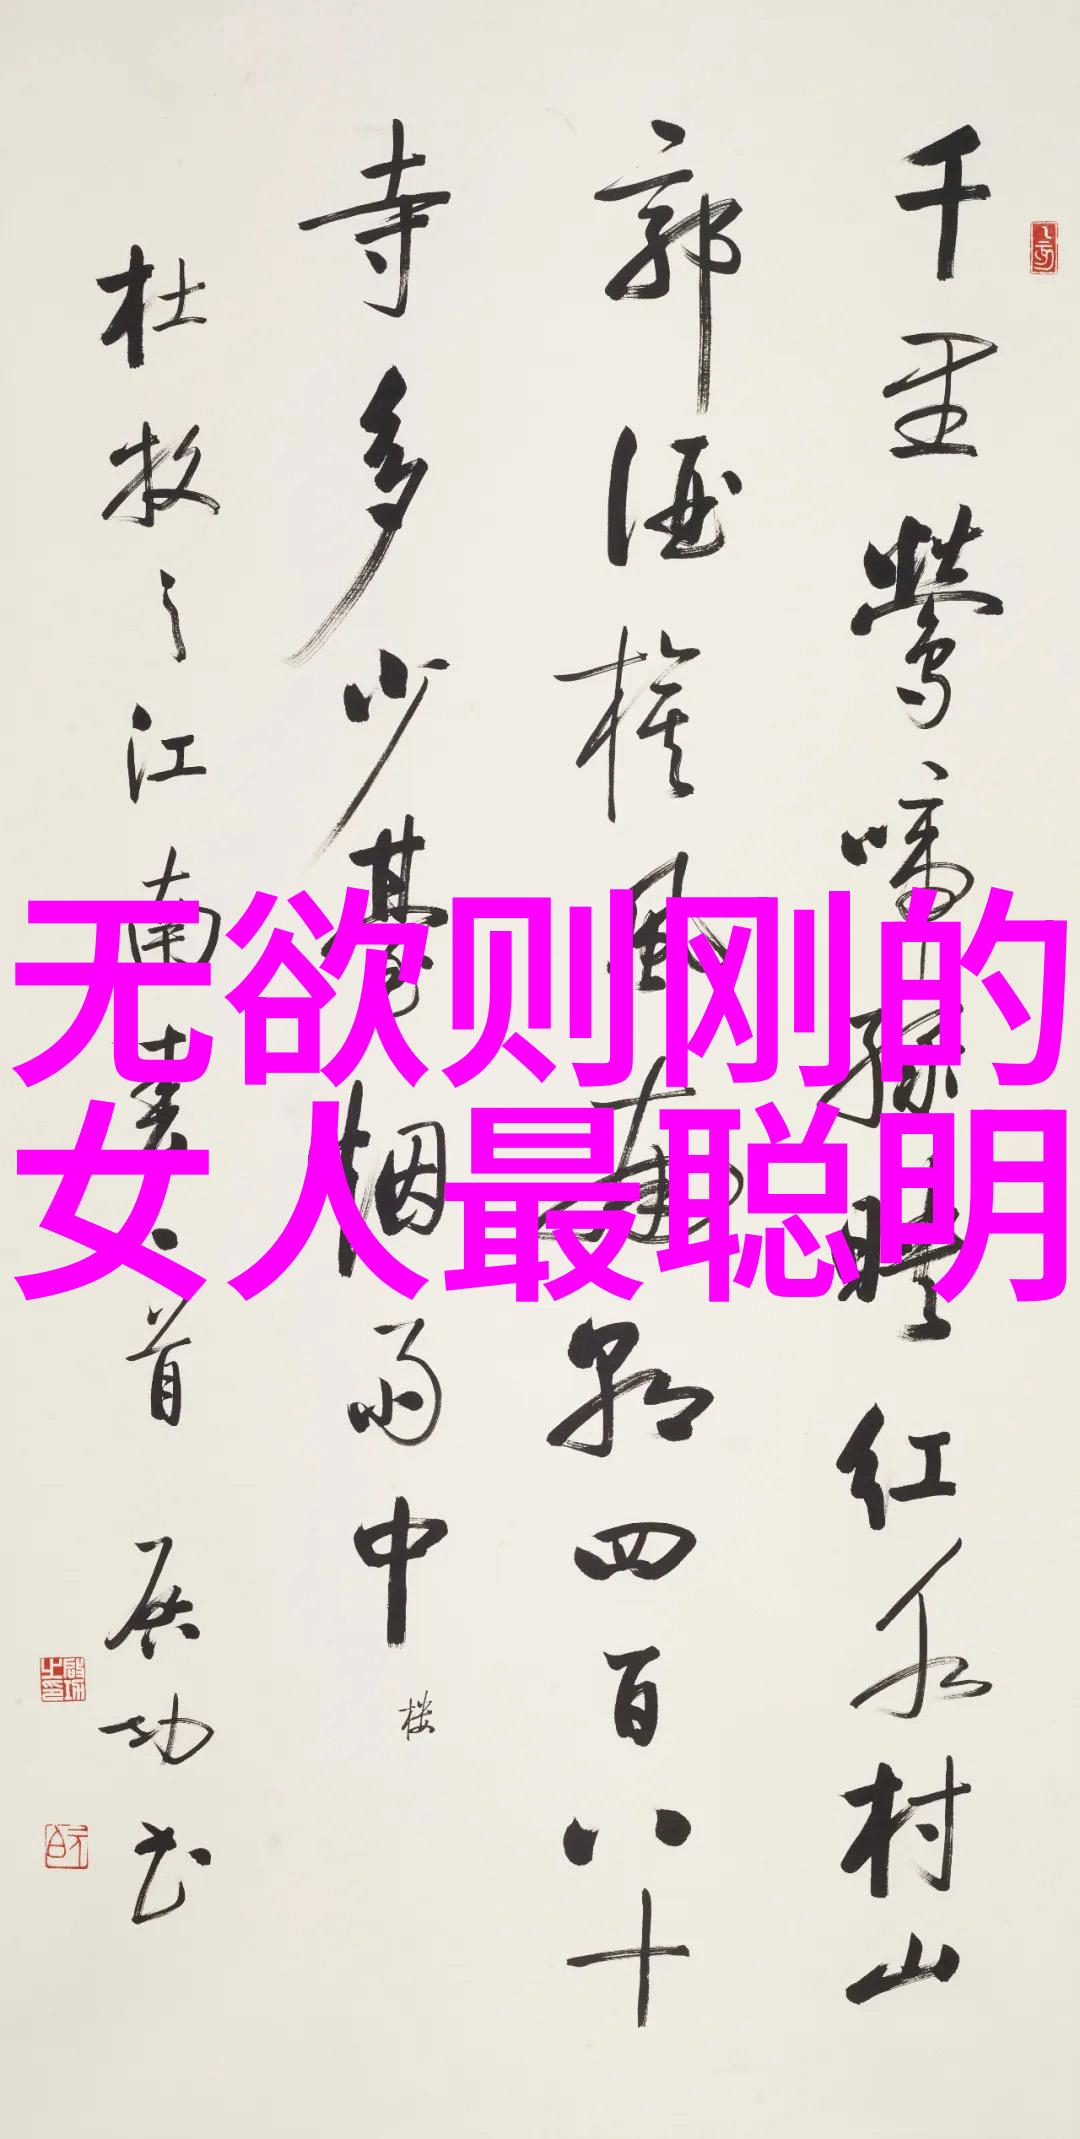 无欲则刚的
女人最聪明
千里鶯啼緑暎红水村山
郭酒旗風南朝四百八十
寺多少臺烟雨中
楼
杜牧之江南春一首 启功书
啟功之印
元白